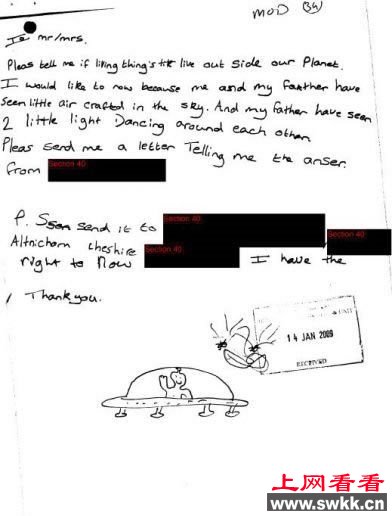 MOD 34
To mr/mrs.
Pleas tell me if liling thing's tit live out side our Planet.
I would like to now because me and my farther have
seen little air crafted in the sky. And my father have seen
2 little light Dancing around each other.
Pleas Send me a letter Telling me the anser.
from Section 40
P. S send it to Section 40
Altnicham cheshire Section 40 Section 40
right to now I have the
Thankyou.
14 JAN 2009
RECEIVED
上网看看
www.swkk.cn